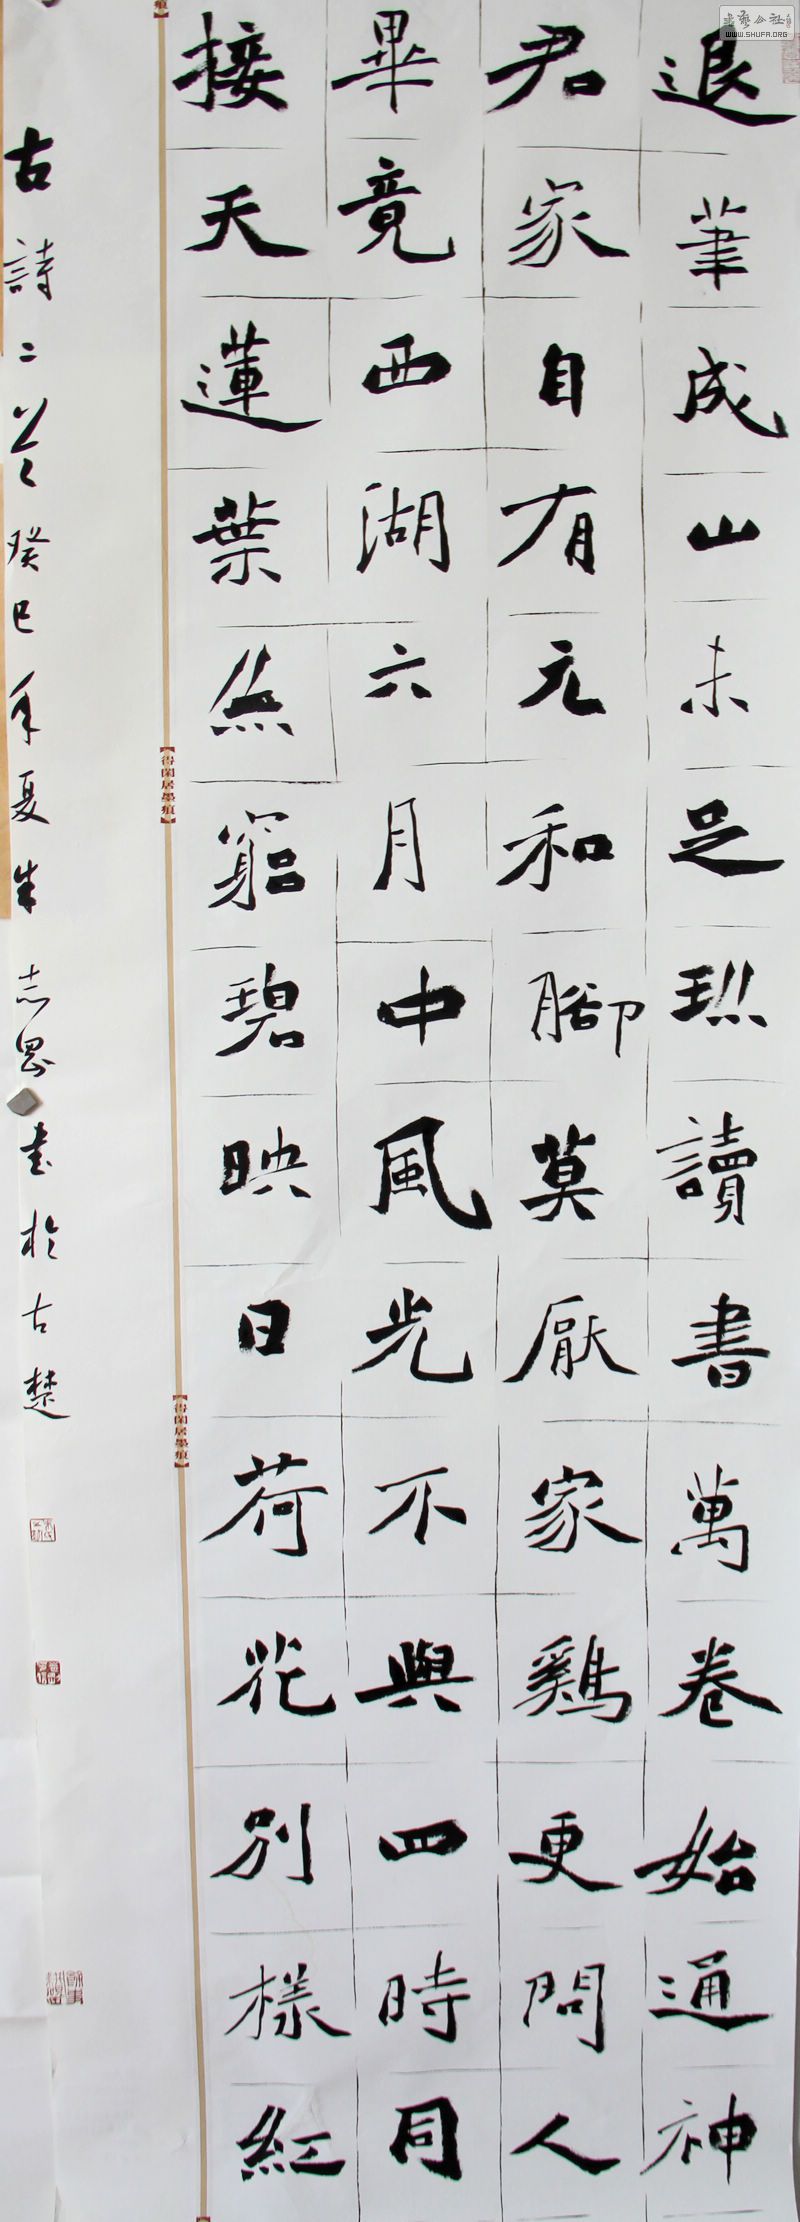 退筆成山未足珎讀書萬卷始通神
君家自有元和腳莫厭家鷄更問人
畢竟西湖六月中風光不與四時同
接天蓮葉無窮碧映日荷花別樣紅
古詩二首癸巳年夏朱志書於古楚
【得閑居墨痕】
【得閑居墨痕】
痕】
書藝公社
WWW.SHUFA.ORG